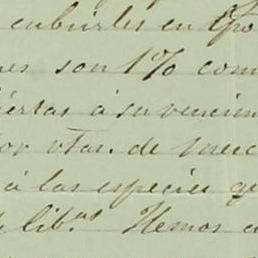 cubrirles en
nes son 1% com
ertas á su vencim
por vtas. de merc
á las especies q
lib.as Hemos